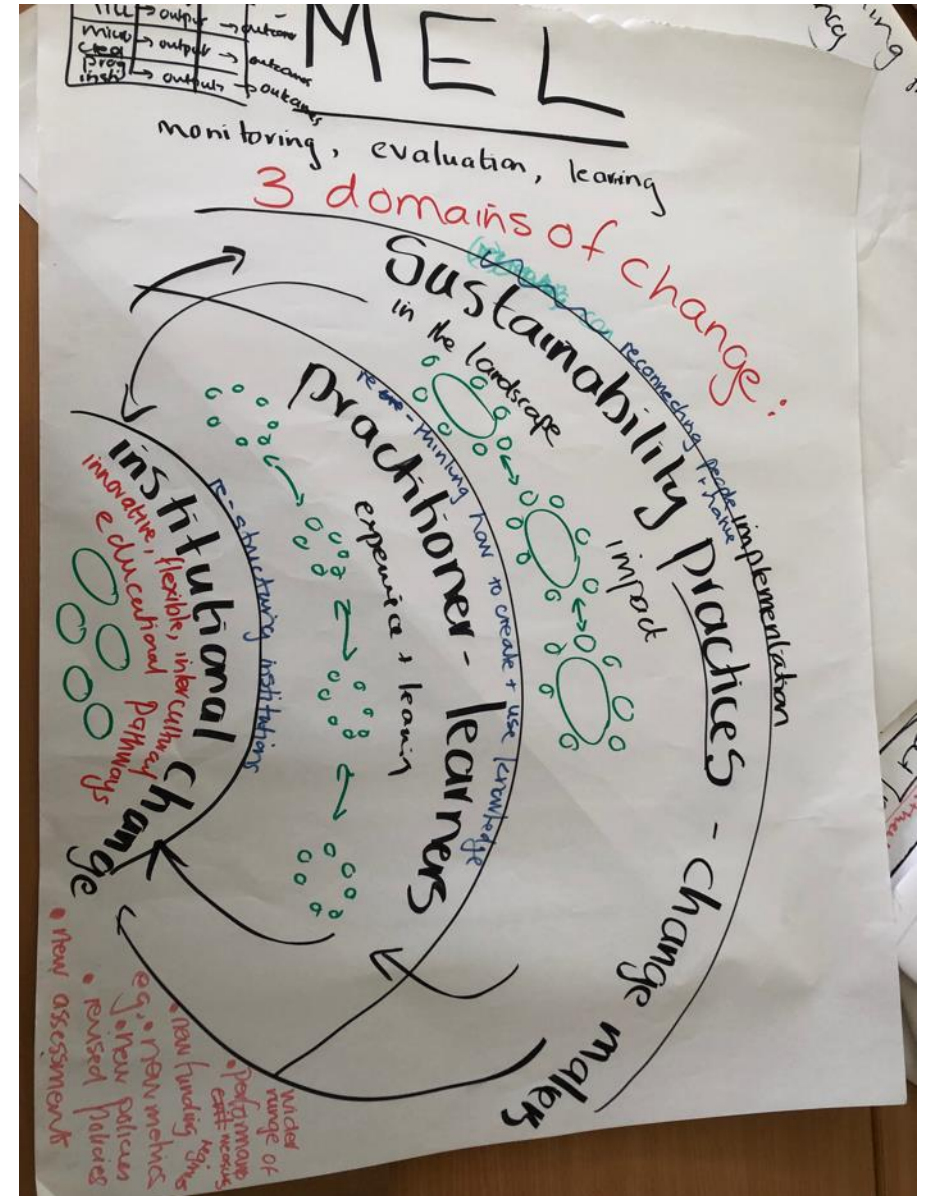 output → outcome
micro → output → outcomes
cred
prog → outputs → outcomes
insti
MEL
monitoring, evaluation, learing
3 domains of change:
reconnecting people + nature
Sustainability practices - change makers
in the landscape
implementation
impact
re-thinking how to create + use knowledge
practitioner - learners
experience + learning
re-structuring institutions
institutional change
innovative, flexible, intercultural
educational pathways
wider
range of
• performance
• new funding
eg. • new metrics
• new policies
• revised policies
• new assessment